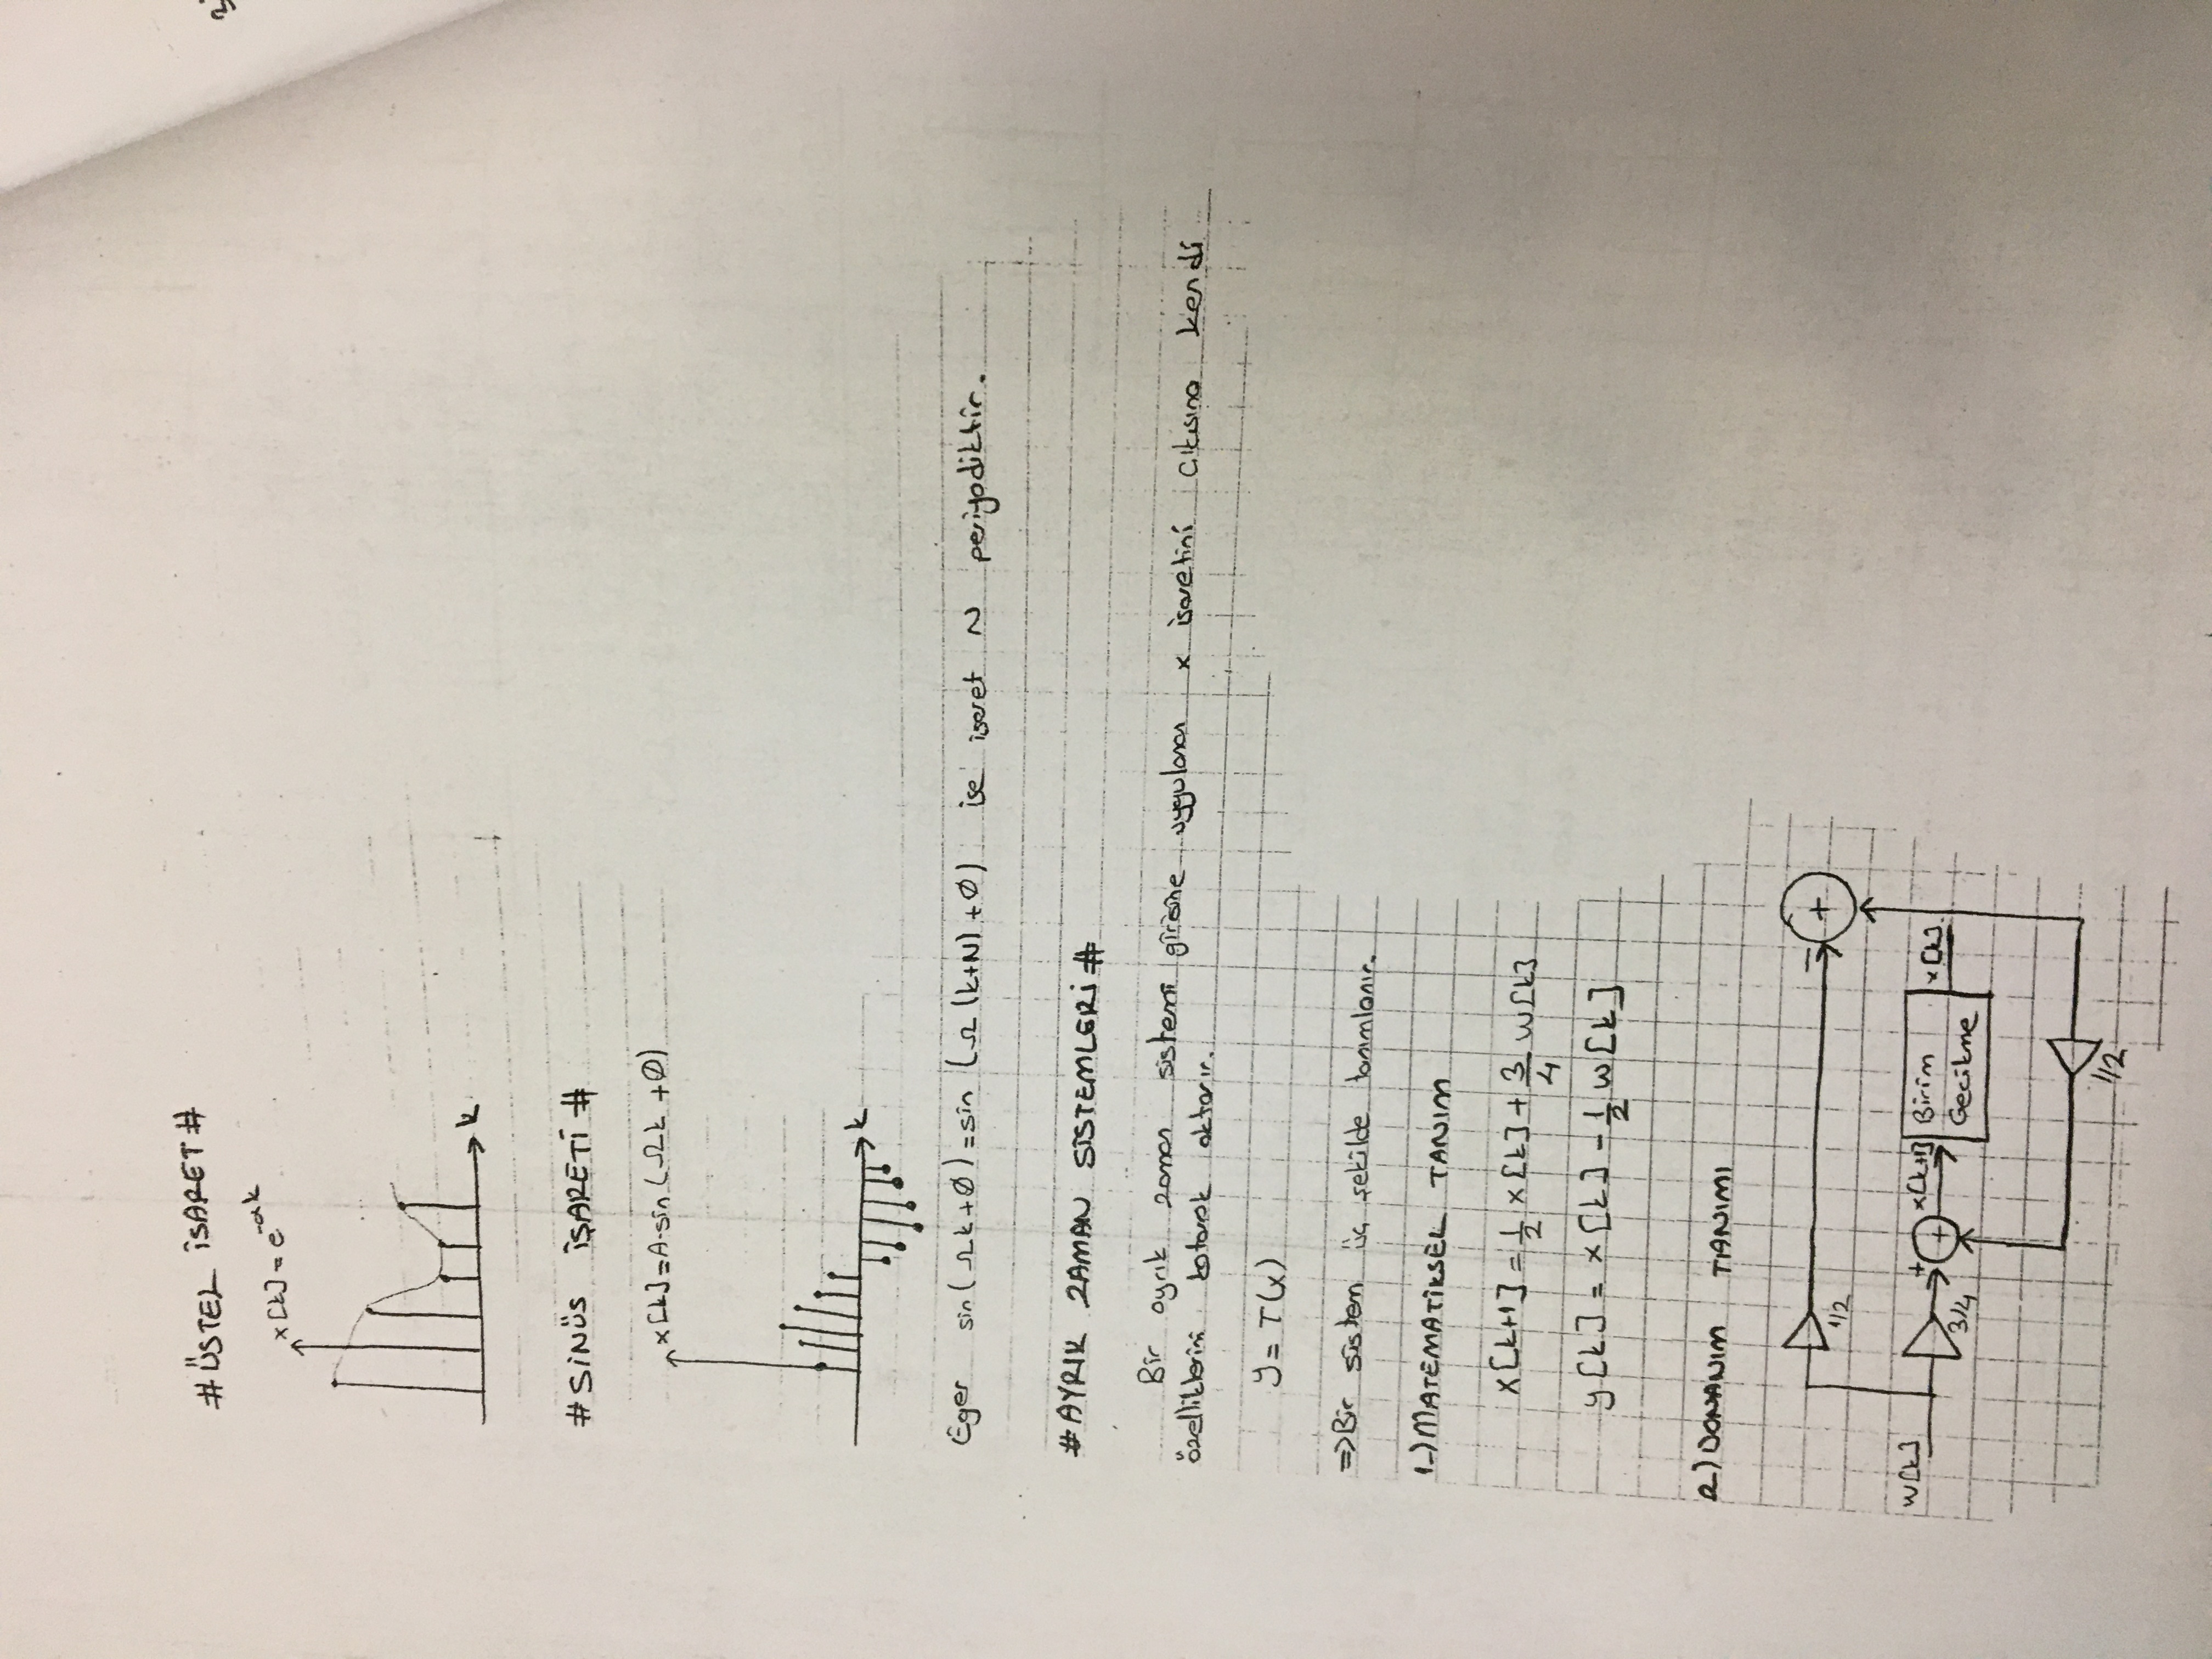 #ÜSTEL İSARET#
x[k] = e^-αk
k
#SİNÜS İŞARETİ#
x[k]=A.sin(Ωk+Ø)
k
Eger sin(Ωk+Ø)=sin(Ω(k+N)+Ø) ise isaret N periyodiktir.
#AYRIK ZAMAN SİSTEMLERİ#
Bir ayrık zaman sistemi girisine uygulanan x isaretini cıkısına kendi
özelliklerini katarak aktarır.
y= T(x)
=>Bir sistem üç şekilde tanımlanır.
1-)MATEMATİKSEL TANIM
x[k+1] = 1/2 x[k] + 3/4 w[k]
y[k] = x[k] - 1/2 w[k]
2)DONANIM TANIMI
1/2
-
+
w[k]
3/4
+
+
x[k+1]
Birim
Gecikme
x[k]
1/2